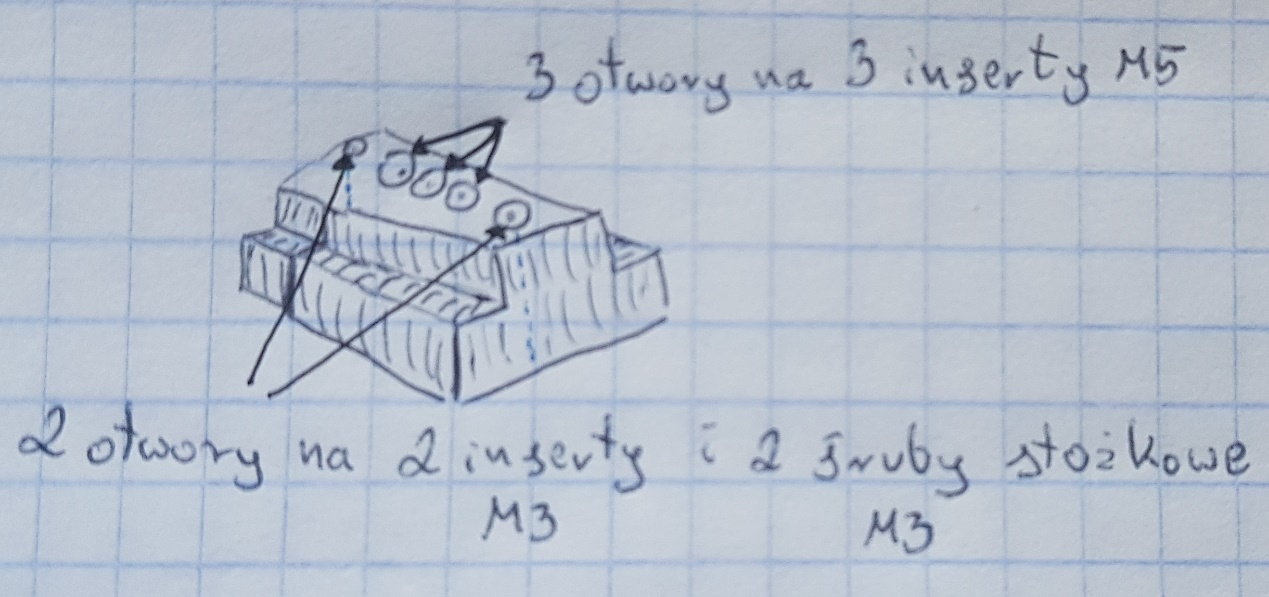 3 otwory na 3 inserty M5
2 otwory na 2 inserty i 2 śruby stożkowe
M3 M3